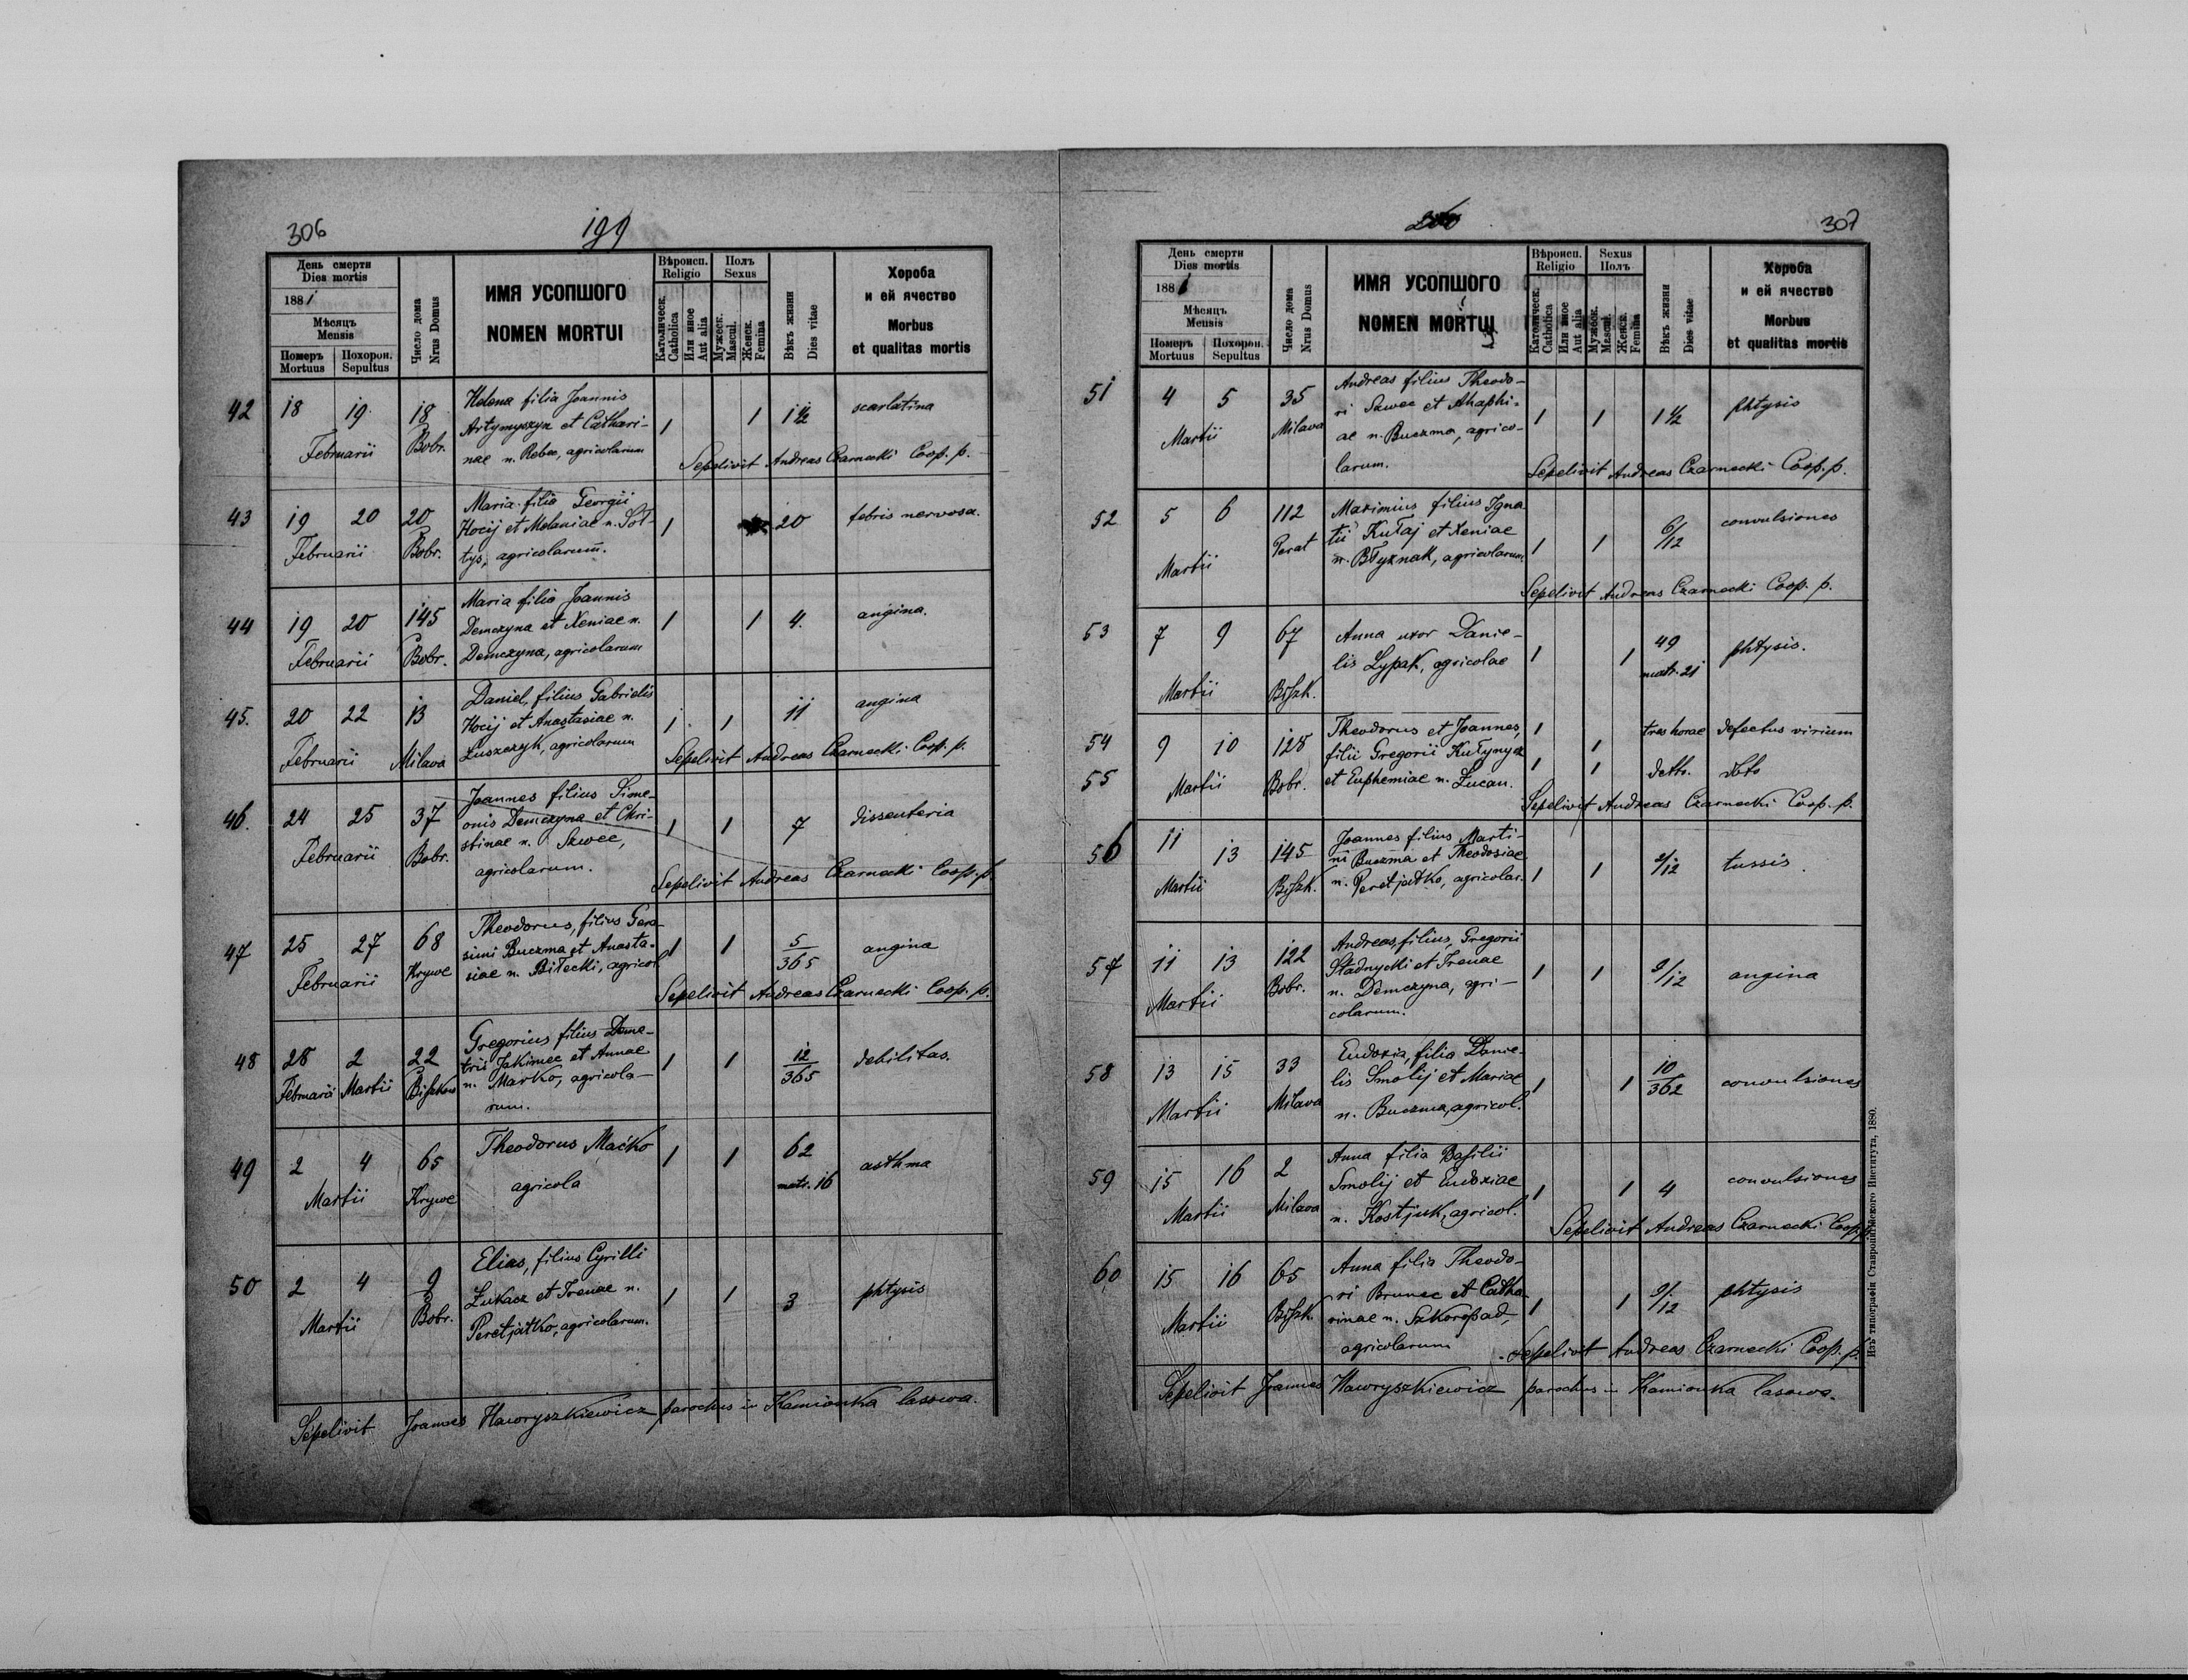 306
199
День смерти
Dies mortis
1881
Мѣсяцъ
Mensis
Померъ
Mortuus
Похорон.
Sepultus
Число дома
Nrus Domus
ИМЯ УСОПШОГО
NOMEN MORTUI
Вѣроисп.
Religio
Католическ.
Catholica
Или иное
Aut alia
Полъ
Sexus
Мужеск.
Mascul.
Женск.
Femina
Вѣкъ жизни
Dies vitae
Хороба
и ей ячество
Morbus
et qualitas mortis
42 18 19 18 Helena filia Joannis
Artymyszyn et Cathari- 1 1 1½ scarlatina
Februarii Bobr. nae n. Rebec, agricolarum
Sepelivit Andreas Czarnecki Coop. p.
43 19 20 20 Maria filia Georgii
Hocij et Melaniae n. Soł- 1 20 febris nervosa.
Februarii Bobr. tys, agricolarum.
44 19 20 145 Maria filia Joannis
Demczyna et Xeniae n. 1 1 4. angina.
Februarii Bobr. Demczyna, agricolarum
45. 20 22 13 Daniel, filius Gabrielis
Hocij et Anastasiae n. 1 1 11 angina
Februarii Milava Łuszczyk, agricolarum
Sepelivit Andreas Czarnecki Coop. p.
46. 24 25 37 Joannes filius Sime-
onis Demczyna et Chri- 1 1 7 dissenteria
Februarii Bobr. stinae n. Szwec,
agricolarum.
Sepelivit Andreas Czarnecki Coop. p.
47 25 27 68 Theodorus, filius Gera-
simi Buczma et Anasta- 1 1 5/365 angina
Februarii Krywe siae n. Biłecki, agricol.
Sepelivit Andreas Czarnecki Coop. p.
48 28 2 22 Gregorius filius Deme-
tris Jakimec et Annae 1 1 12/365 debilitas.
Februarii Martii Biszkow n. Marko, agricola-
rum.
49 2 4 65 Theodorus Maćko 1 1 62 asthma
Martii Krywe agricola matr. 16
50 2 4 9 Elias, filius Cyrilli
Łukacz et Irenae n. 1 1 3 phtysis
Martii Bobr. Peretjatko, agricolarum.
Sepelivit Joannes Hawryszkiewicz parochus in Kamionka lasowa.
307
День смерти
Dies mortis
1881
Мѣсяцъ
Mensis
Померъ
Mortuus
Похорон.
Sepultus
Число дома
Nrus Domus
ИМЯ УСОПШОГО
NOMEN MORTUI
Вѣроисп.
Religio
Католическ.
Catholica
Или иное
Aut alia
Sexus
Полъ
Мужеск.
Mascul.
Женск.
Femina
Вѣкъ жизни
Dies vitae
Хороба
и ей ячество
Morbus
et qualitas mortis
51 4 5 35 Andreas filius Theodo-
ri Szwec et Ahaphi- 1 1 1½ phtysis
Martii Milava ae n. Buczma, agrico-
larum.
Sepelivit Andreas Czarnecki Coop. p.
52 5 6 112 Maximius filius Igna
Perat tii Kułaj et Xeniae 6/12 convulsiones
Martii n. Błyznak, agricolarum 1 1
Sepelivit Andreas Czarnecki Coop. p.
53 7 9 67 Anna uxor Danie- 49
lis Lypak, agricolae 1 1 matr. 21 phtysis.
Martii Biszk.
54 9 10 128 Theodorus et Joannes, 1 1 tres horae defectus virium
filii Gregorii Kułynycz
55 Martii Bobr. et Euphemiae n. Łucan. 1 1 detto. dtto
Sepelivit Andreas Czarnecki Coop. p.
56 11 13 145 Joannes filius Marti-
ni Buczma et Theodosiae
Martii Biszk. n. Peretjatko, agricolar. 1 1 2/12 tussis.
57 11 13 122 Andreas, filius, Gregorii
Stadnycki et Irenae
Martii Bobr. n. Demczyna, agri- 1 1 9/12 angina
colarum.
58 13 15 33 Eudoxia, filia Danie-
lis Smolij et Mariae 1 1 10/362 convulsiones
Martii Milava n. Buczma, agricol.
59 15 16 2 Anna filia Basilii
Smolij et Eudoxiae 1 1 4 convulsiones
Martii Milava n. Kostjuk, agricol.
Sepelivit Andreas Czarnecki Coop. p.
60 15 16 65 Anna filia Theodo-
ri Brunec et Catha- 1 1 9/12 phtysis
Martii Biszk. rinae n. Szkoropad,
agricolarum
Sepelivit Andreas Czarnecki Coop. p.
Sepelivit Joannes Hawryszkiewicz parochus in Kamionka lasowa.
Изъ типографіи Ставропигійского Института, 1880.